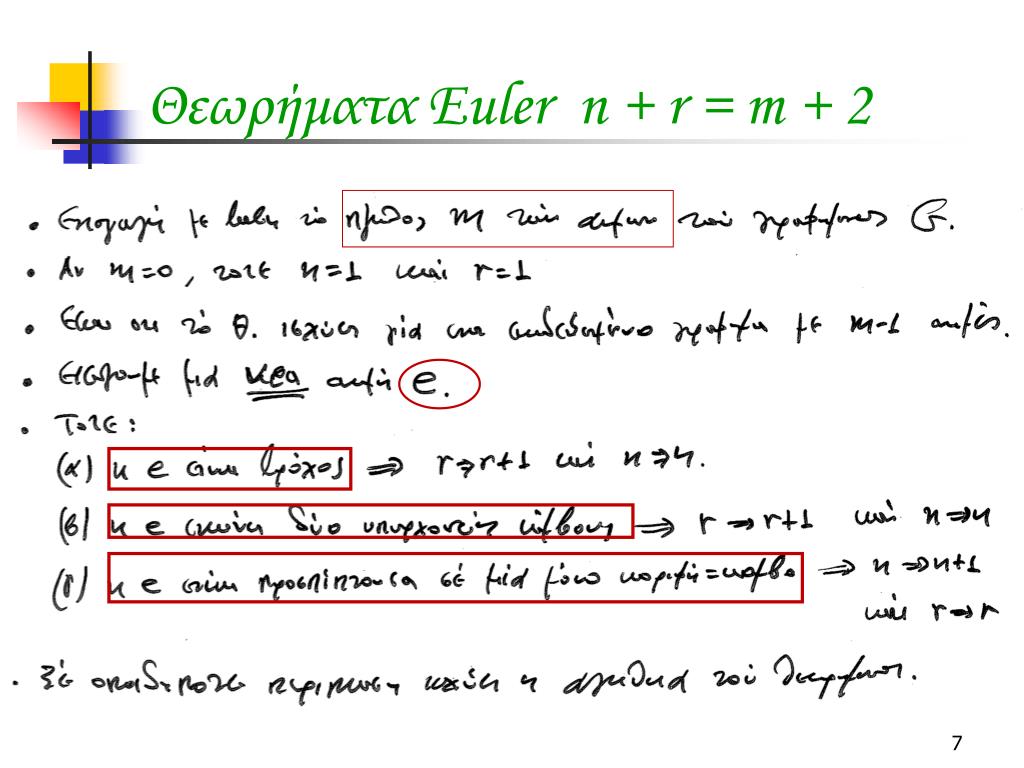 Θεωρήματα Euler n + r = m + 2
• Επαγωγή με βαση το πληθος m των ακμων του γραφηματος G.
• Αν m=0, τοτε n=1 και r=1
• Εστω οτι το θ. ισχύει γιά ενα συνδεδεμένο γραφημα με m-1 ακμές.
• Εισαγο-με μιά νεα ακμή e.
• Τοτε:
(α) η e είναι βρόχος ⇒ r→r+1 και n→n.
(β) η e ενώνει δύο υπαρχοντες κόμβους ⇒ r→r+1 και n→n
(γ) η e είναι προσπίπτουσα σέ μιά μόνο κορυφή=κομβο ⇒ n→n+1
και r→r
• Σέ οποιαδηποτε περιπτωση ισχύει η αληθεια του θεωρηματος.
7